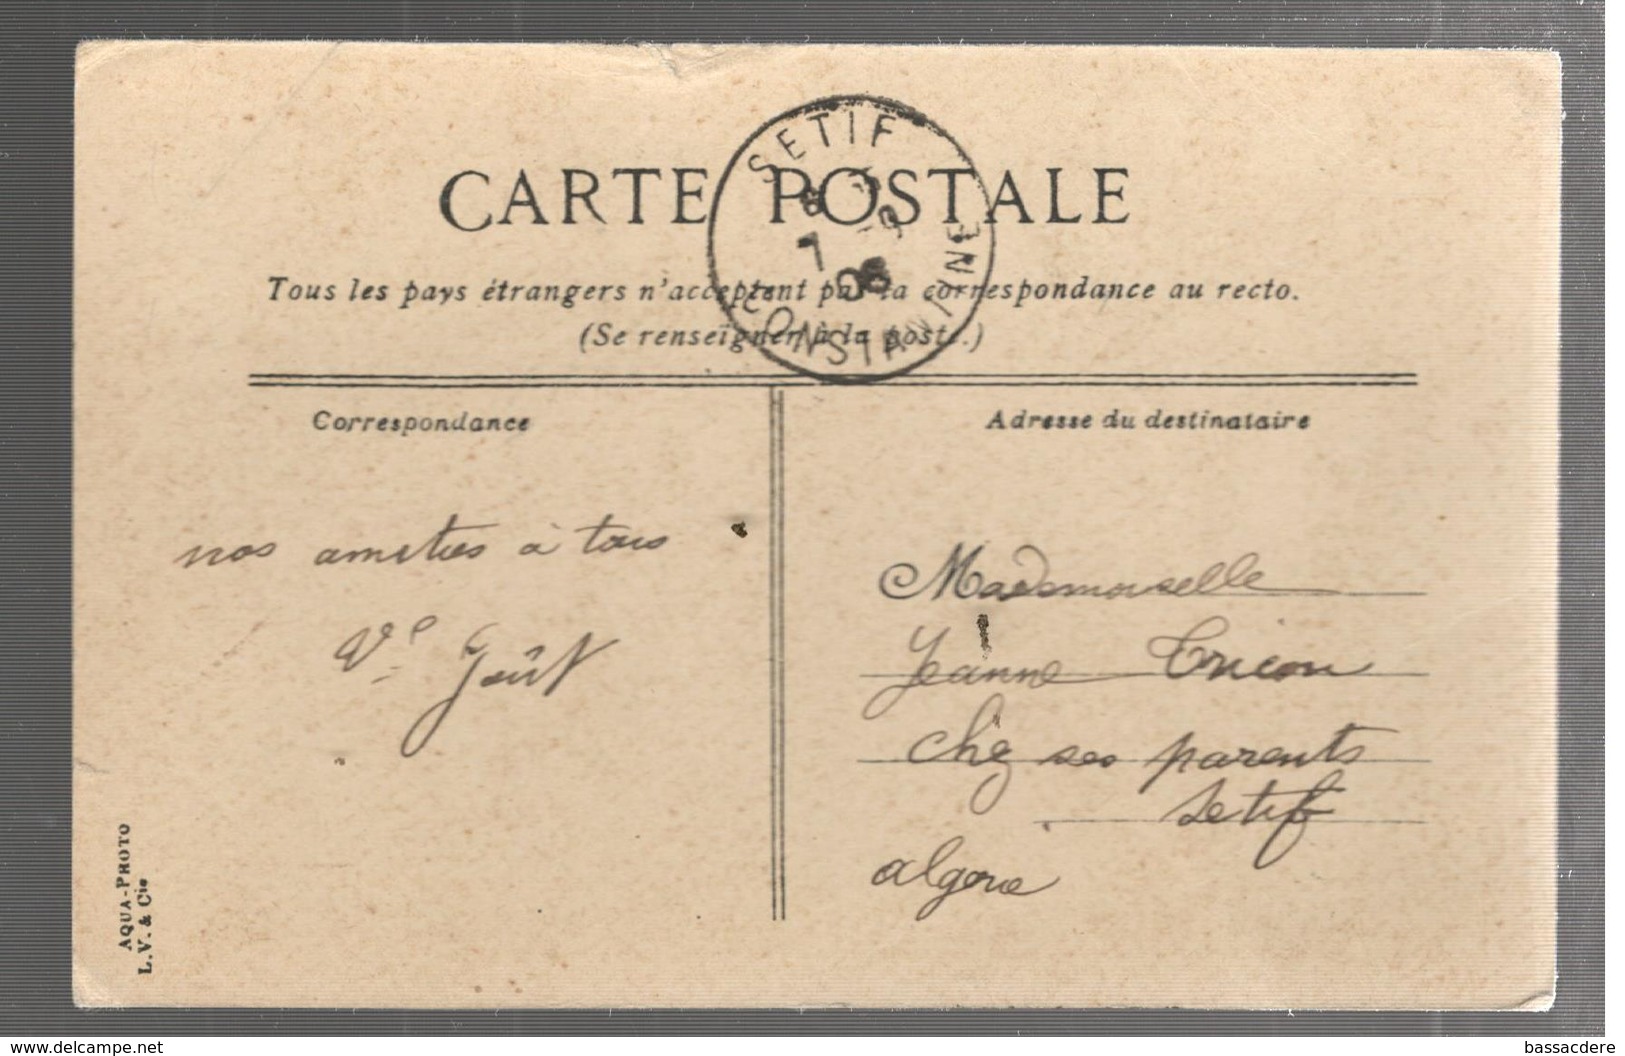 CARTE POSTALE
SETIF
CONSTANTINE
Tous les pays étrangers n'acceptent pas la correspondance au recto.
(Se renseigner à la poste.)
Correspondance
Adresse du destinataire
nos amities à tous
Vve Goût
Mademoiselle
Jeanne Tricon
chez ses parents
Setif
algerie
AQUA-PHOTO
L.V. & Cie
www.delcampe.net
bassacdere